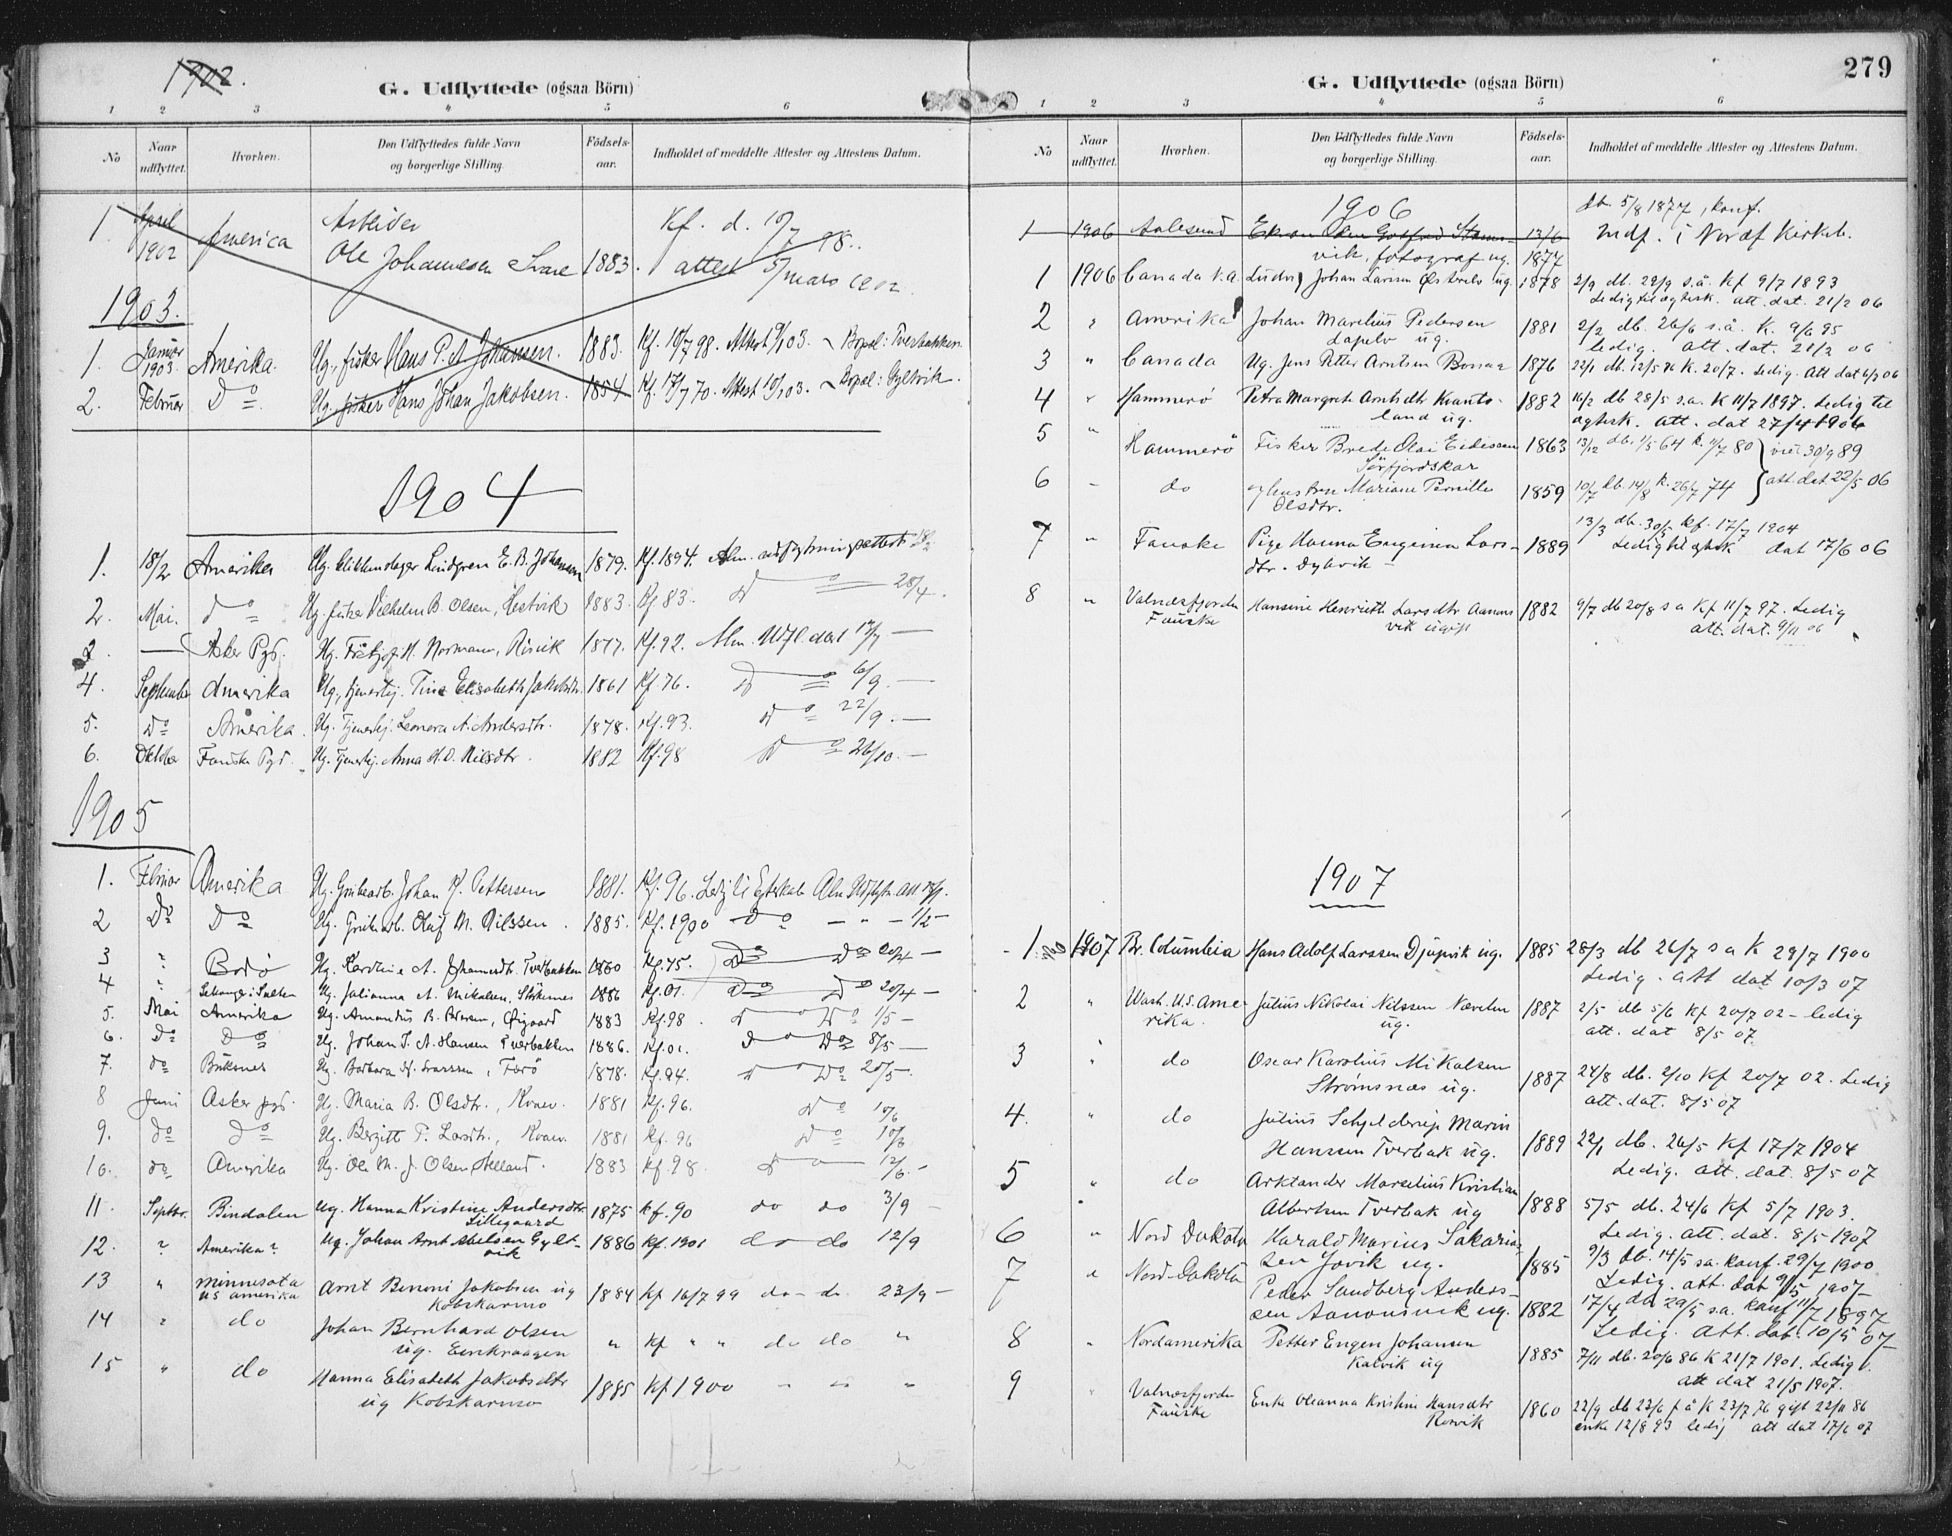 1902.
G. Udflyttede (ogsaa Börn)
1 2 3 4 5 6
No
Naar udflyttet.
Hvorhen.
Den Udflyttedes fulde Navn og borgerlige Stilling
Födsels-aar.
Indholdet af meddelte Attester og Attestens Datum.
1. April 1902 America Arbeider Kf. d. 10/7 98.
Ole Johannesen Svare 1883. attest 5/ mars 1902.
1903.
1. Januar 1903. Amerika. Ug. fisker Hans P. A. Johansen. 1883. Kf. 10/7 98. Attest 9/1 03. Bopæl: Tverbakken.
2. Februar Do. Ug. fisker Hans Johan Jakobsen. 1854 Kf. 17/7 70. Attest 10/2 03. Bopæl: Gyltvik.
1904
1. 18/2 Amerika Ug. Lindgren E. B. Johansen 1879. Kf. 1894. Alm. udflytningsattest 18/2
2. Mai. Do Ug. fisker Vilhelm B. Olsen, Hestvik 1883. Kf 83. Do 28/4.
3. — Asker Pgd. Ug. Fritjof H. Normann, Risvik 1877. Kf. 92. Alm. Udfl. dat 17/7 —
4. September Amerika Ug. tjenestej. Tine Elisabeth Jakobsdtr. 1861 Kf. 76. Do 6/9. —
5. Do Amerika. Ug. Tjenestej. Leonora A. Andersdtr. 1878. Kf. 93. Do 22/9. —
6. Oktober Fauske Pgd. Ug. Tjenestej. Anna H. O. Nilsdtr. 1882 Kf. 98 Do 26/10. —
1905
1. Februar Amerika Ug. Grubearb. Johan P. Pettersen 1881. Kf. 96. Ledig til Egteskab Alm Udflytn. att
2 Do Do Ug. Grubearb. Olaf M. Nilssen. 1885. Kf. 1900 Do — " — 1/2 —
3 " Bodø Ug. A. Johannesdtr. Tverbakken 1860 Kf. 75. Do Do 20/4 —
4 " Ug. Julianna A. Nikolsen, Störkesnes 1886 Kf. 01. Do Do 20/4 —
5. Mai Amerika Ug. Amandus B. 1883 Kf. 98. Do Do 1/5 —
6. Do Do Ug. Johan J. A. Hansen Tverbakken 1886. Kf. 01. Do Do 8/5 —
7. do Buksnes Ug. Barbara H. Larssen, Færö 1878. Kf. 94. Do 20/5.
8 Juni Asker pgd. Ug. Maria B. Olsdtr., Kvæv. 1881 Kf. 96. Do 10/6
9. do Do Ug. Bergitt P. Larsdtr., Kvæv. 1881 Kf. 96 Do 10/6
10. do Amerika Ug. Ole M. J. Olsen Helland. 1883 Kf. 98. Do 12/6.
11. Septbr. Bindalen ug. Hanna Kristine Andersdtr Lillegaard 1875 kf. 90 do do 3/9 —
12. " Amerika? ug. Johan Arnt Nilsen Gyltvik 1886 kf. 1901 do do 12/9
13 " Minnesota US amerika Arnt Benoni Jakobsen ug Kobskarmo 1884 kf 16/7 99 do — do. 23/9 —
14 " do Johan Bernhard Olsen ug. Eenkroogen " kf " " do do "
15 " do Hanna Elisabeth Jakobsdtr ug Kobskarmo 1885 kf 1900 — " "
279
G. Udflyttede (ogsaa Börn)
1 2 3 4 5 6
No
Naar udflyttet.
Hvorhen.
Den Udflyttedes fulde Navn og borgerlige Stilling.
Födsels-aar.
Indholdet af meddelte Attester og Attestens Datum.
1906
db. 5/8 1877, konf.
1 1906 Aalesund Gotfred Stavnvik, fotograf ug. 13/6 1877 indf. i Nordf Kirkeb.
1 1906 Canada N.A. Ludvig Johan Larsen ug. 1878 2/9 db. 29/9 s.å. kf 9/7 1893
Ledig til egtesk. att. dat. 21/2 06
2 " Amerika Johan Marelius Pedersen ug. 1881 2/2 db. 26/6 s.å. K. 9/6 95
Ledig. att. dat. 21/2 06
3 " Canada Ug. Jens Petter Arntsen 1876 22/1 db. 12/5 K. 20/7. Ledig. Att dat 6/3 06
4 " Hammerö Petra Margret Arntsdtr Kvantoland ug. 1882 16/2 db 28/5 s.a. K 11/7 1897. Ledig til egtesk. att. dat 27/4 1906
5 " Hammerö Fisker Brede Olai Eidissen Sörfjordskar 1863 13/12 db. 1/5 64 K. 11/7 80 viet 30/9 89
6 – do og hustru Mariane Pernille Olsdtr. 1859 10/7 db. 14/8 K. 26/7 74 att. dat 22/5 06
7 " Fauske Pige Hanna Eugenia Larsdtr. Dybvik – 1889 13/3 db. 30/5 kf. 17/7 1904
Ledig til egtesk dat 17/6 06
8 " Valnæsfjorden Fauske Hansine Henriette Larsdtr Aanonsvik ugift 1882 9/7 db 20/8 s a Kf 11/7 97. Ledig
att. dat. 9/11 06
1907
1 1907 Br. Columbia Hans Adolf Larssen Djupvik ug. 1885 28/3 db 26/7 s a K 29/7 1900
Ledig. att dat 10/3 07
2 " Wash. U.S. Amerika. Julius Nikolai Nilssen Nævelen ug. 1887 2/5 db 5/6 Kf 20/7 02 – ledig
att. dat 8/5 07
3 " do Oscar Karolius Mikalsen Strömsnæs ug. 1887 24/8 db. 2/10 Kf 20/7 02. Ledig
att. dat. 8/5 07
4. " do Julius Schjelderup Marin Hansen Tverbak ug. 1889 22/1 db. 26/5 Kf 17/7 1904
Ledig. att. dat. 8/5 07
5 " do Arktander Marselius Kristian Albertsen Tverbak ug 1888 5/5 db. 24/6 Kf 5/7 1903.
Ledig. att. dat. 8/5 1907
6 " Nord Dakota Harald Marius Sakariassen Jovik ug. 1885 9/3 db. 14/5 s.a. konf. 29/7 1900
Ledig. att. dat 9/5 1907
7 " Nord-Dakota Peder Sandberg Anderssen Aanonsvik ug. 1882 17/4 db 29/5 s.a. konf 11/7 1897
Ledig. att. dat. 10/5 07
8 " Nordamerika Petter Engen Johansen Kalvik ug 1885 7/11 db. 20/6 86 K 21/7 1901. Ledig
att dat 21/5 1907.
9 " Valnæsfjorden Fauske Enke Oleanna Kristine Hansdtr Rørvik 1860 22/9 db 23/6 f å K 23/7 76 gift 22/11 86
enke 12/8 93 ledig att dat 17/6 07